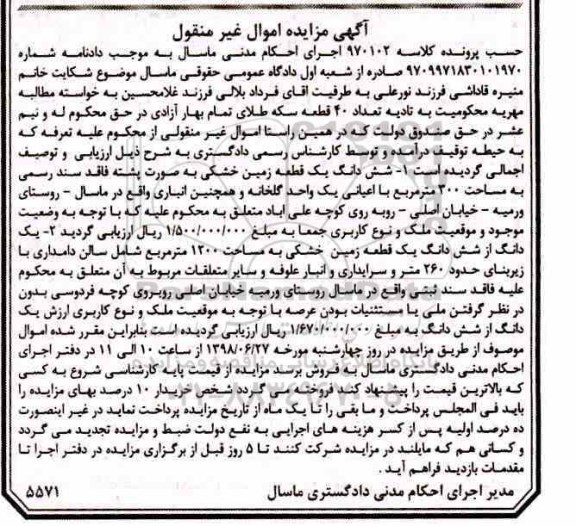 آگهی مزایده اموال غیر منقول
حسب پرونده کلاسه ۹۷۰۱۰۲ اجرای احکام مدنی ماسال به موجب دادنامه شماره
۹۷۰۹۹۷۱۸۳۰۱۰۱۹۷۰ صادره از شعبه اول دادگاه عمومی حقوقی ماسال موضوع شکایت خانم
منیره قاداشی فرزند نورعلی به طرفیت اقای فرداد بلالی فرزند غلامحسین به خواسته مطالبه
مهریه محکومیت به تادیه تعداد ۴۰ قطعه سکه طلای تمام بهار آزادی در حق محکوم له و نیم
عشر در حق صندوق دولت که در همین راستا اموال غیر منقولی از محکوم علیه تعرفه که
به حیطه توقیف درآمده و توسط کارشناس رسمی دادگستری به شرح ذیل ارزیابی و توصیف
اجمالی گردیده است ۱- شش دانگ یک قطعه زمین خشکی به صورت پشته فاقد سند رسمی
به مساحت ۳۰۰ مترمربع با اعیانی یک واحد گلخانه و همچنین انباری واقع در ماسال – روستای
ورمیه – خیابان اصلی – روبه روی کوچه علی اباد متعلق به محکوم علیه که با توجه به وضعیت
موجود و موقعیت ملک و نوع کاربری جمعا به مبلغ ۱/۵۰۰/۰۰۰/۰۰۰ ریال ارزیابی گردید ۲- یک
دانگ از شش دانگ یک قطعه زمین خشکی به مساحت ۱۲۰۰ مترمربع شامل سالن دامداری با
زیربنای حدود ۲۶۰ متر و سرایداری و انبار علوفه و سایر متعلقات مربوط به آن متعلق به محکوم
علیه فاقد سند ثبتی واقع در ماسال روستای ورمیه خیابان اصلی روبروی کوچه فردوسی بدون
در نظر گرفتن ملی یا مستثنیات بودن عرصه با توجه به موقعیت ملک و نوع کاربری ارزش یک
دانگ از شش دانگ به مبلغ ۱/۶۷۰/۰۰۰/۰۰۰ ریال ارزیابی گردیده است بنابراین مقرر شده اموال
موصوف از طریق مزایده در روز چهارشنبه مورخه ۱۳۹۸/۰۶/۲۷ از ساعت ۱۰ الی ۱۱ در دفتر اجرای
احکام مدنی دادگستری ماسال به فروش برسد مزایده از قیمت پایه کارشناسی شروع به کسی
که بالاترین قیمت را پیشنهاد کنید فروخته می گردد شخص خریدار ۱۰ درصد بهای مزایده را
باید فی المجلس پرداخت و ما بقی را تا یک ماه از تاریخ مزایده پرداخت نماید در غیر اینصورت
ده درصد اولیه پس از کسر هزینه های اجرایی به نفع دولت ضبط و مزایده تجدید می گردد
و کسانی هم که مایلند در مزایده شرکت کنند تا ۵ روز قبل از برگزاری مزایده در دفتر اجرا تا
مقدمات بازدید فراهم آید .
مدیر اجرای احکام مدنی دادگستری ماسال
۵۵۷۱